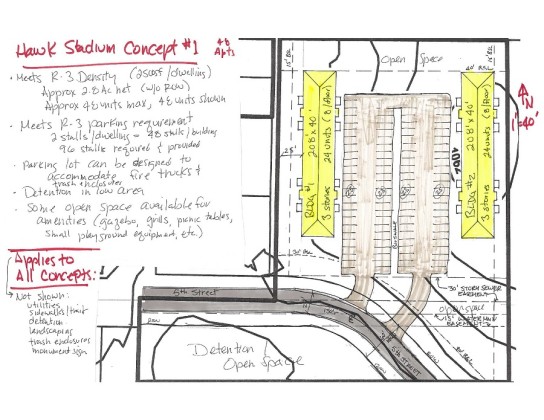 Hawk Stadium Concept #1
48 Apts
• Meets R-3 Density (2500sf/dwelling)
Approx 2.8 Ac net (w/o ROW)
Approx 48 units max, 48 units shown
• Meets R-3 parking requirement
2 stalls/dwelling = 48 stalls/building
96 stalls required & provided
• Parking lot can be designed to
accommodate fire trucks &
trash enclosures
• Detention in low area
• Some open space available for
amenities (gazebo, grills, picnic tables,
small playground equipment, etc.)
Applies to
All Concepts:
Not shown:
utilities
sidewalks/trail
detention
landscaping
trash enclosures
monument sign
Open Space
40' BSL
25'
BLDG #1
3 stories
208' x 40'
24 units (8/floor)
BLDG #2
3 stories
208' x 40'
24 units (8/floor)
N
1"=40'
30' STORM SEWER
EASEMENT
Open space
15' WATERMAIN
EASEMENT
30' BSL
5th Street
5th Street
ROW
ROW
Detention /
Open Space